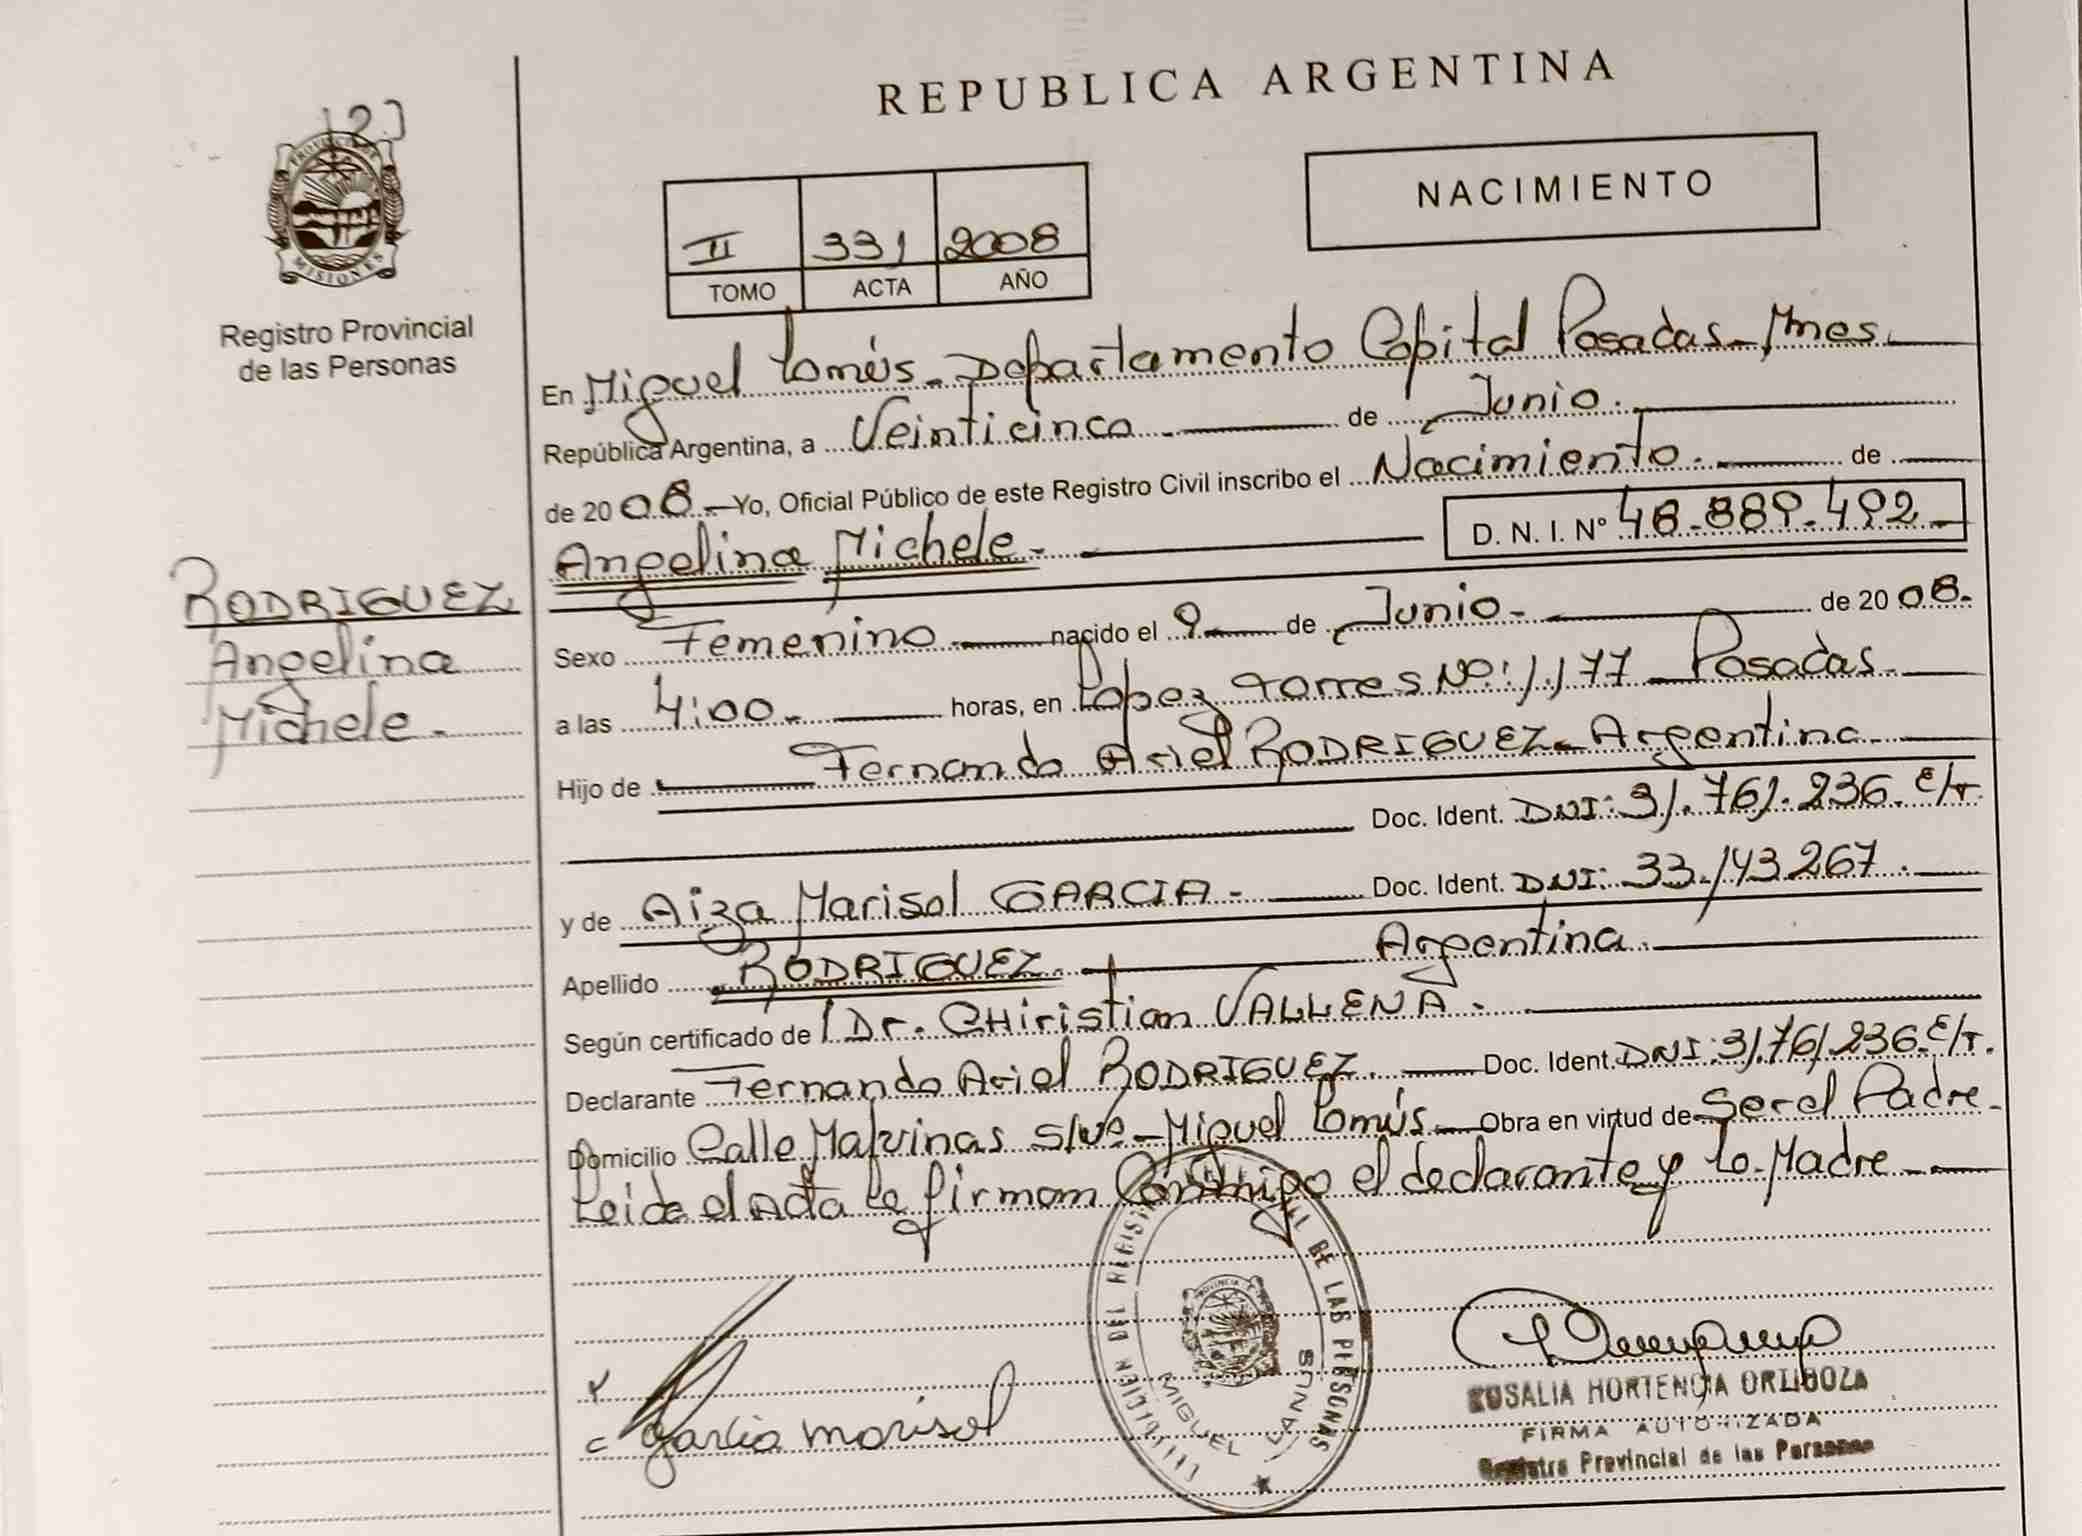 REPUBLICA ARGENTINA
123
PROVINCIA DE
MISIONES
Registro Provincial
de las Personas
NACIMIENTO
II 331 2008
TOMO ACTA AÑO
En Miguel Lanús - Departamento Capital Posadas - Mnes.
República Argentina, a Veinticinco de Junio.
de 2008.- Yo, Oficial Público de este Registro Civil inscribo el Nacimiento. de
Angelina Michele.- D. N. I. Nº 48.889.492
RODRIGUEZ
Angelina
Michele.-
Sexo Femenino nacido el 9 de Junio- de 2008.
a las 4:00.- horas, en Lopez Torres Nº: 1.177 - Posadas
Hijo de Fernando Ariel RODRIGUEZ - Argentina.
Doc. Ident. DNI: 31.761.236. E/T.
y de Aiza Marisol GARCIA.- Doc. Ident. DNI: 33.143.267.-
Apellido RODRIGUEZ. Argentina.
Según certificado de Dr. CHiristian VALLENA.-
Declarante Fernando Ariel RODRIGUEZ. Doc. Ident. DNI: 31.761.236. E/T.
Domicilio Calle Malvinas S/Nº - Miguel Lanús - Obra en virtud de Ser el Padre -
Leida el Acta la firman Conmigo el declarante y la Madre
DEL REGISTRO PROVINCIAL DE LAS PERSONAS
MIGUEL LANUS
Garcia marisol
ROSALIA HORTENCIA ORTIGOZA
FIRMA AUTORIZADA
Registro Provincial de las Personas